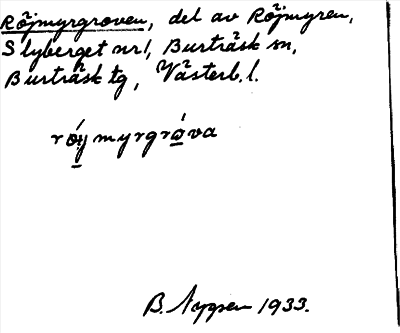 Röjmyrgroven, del av Röjmyren,
Slyberget nr 1, Burträsk sn,
Burträsk tg, Västerb. l.
röjmyrgrova
B. 1933.